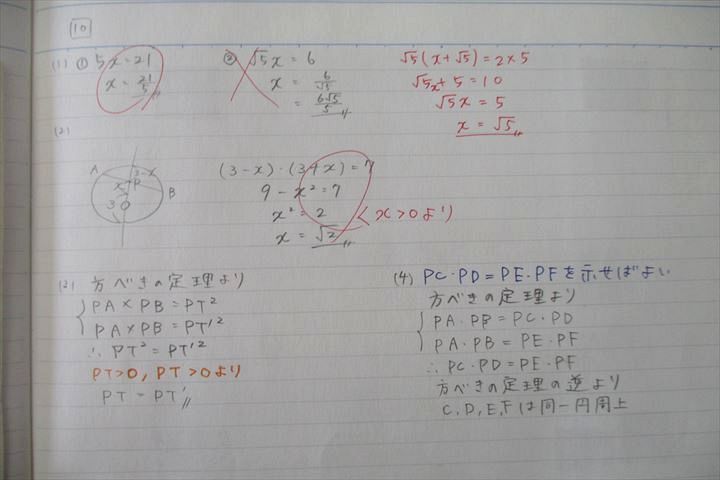 10
(1) ① 5x=21
x = 21/5
② √5x = 6
x = 6/√5
= 6√5/5
√5(x+√5)=2×5
√5x+5=10
√5x=5
x=√5
(2)
A
3-x
P
x
B
3
O
(3-x)・(3+x)=7
9-x²=7
x²=2
x=√2
x>0より
(3) 方べきの定理より
PA×PB=PT²
PA×PB=PT'²
∴ PT²=PT'²
PT>0, PT'>0より
PT=PT'
(4) PC・PD=PE・PFを示せばよい
方べきの定理より
PA・PB=PC・PD
PA・PB=PE・PF
∴ PC・PD=PE・PF
方べきの定理の逆より
C,D,E,Fは同一円周上